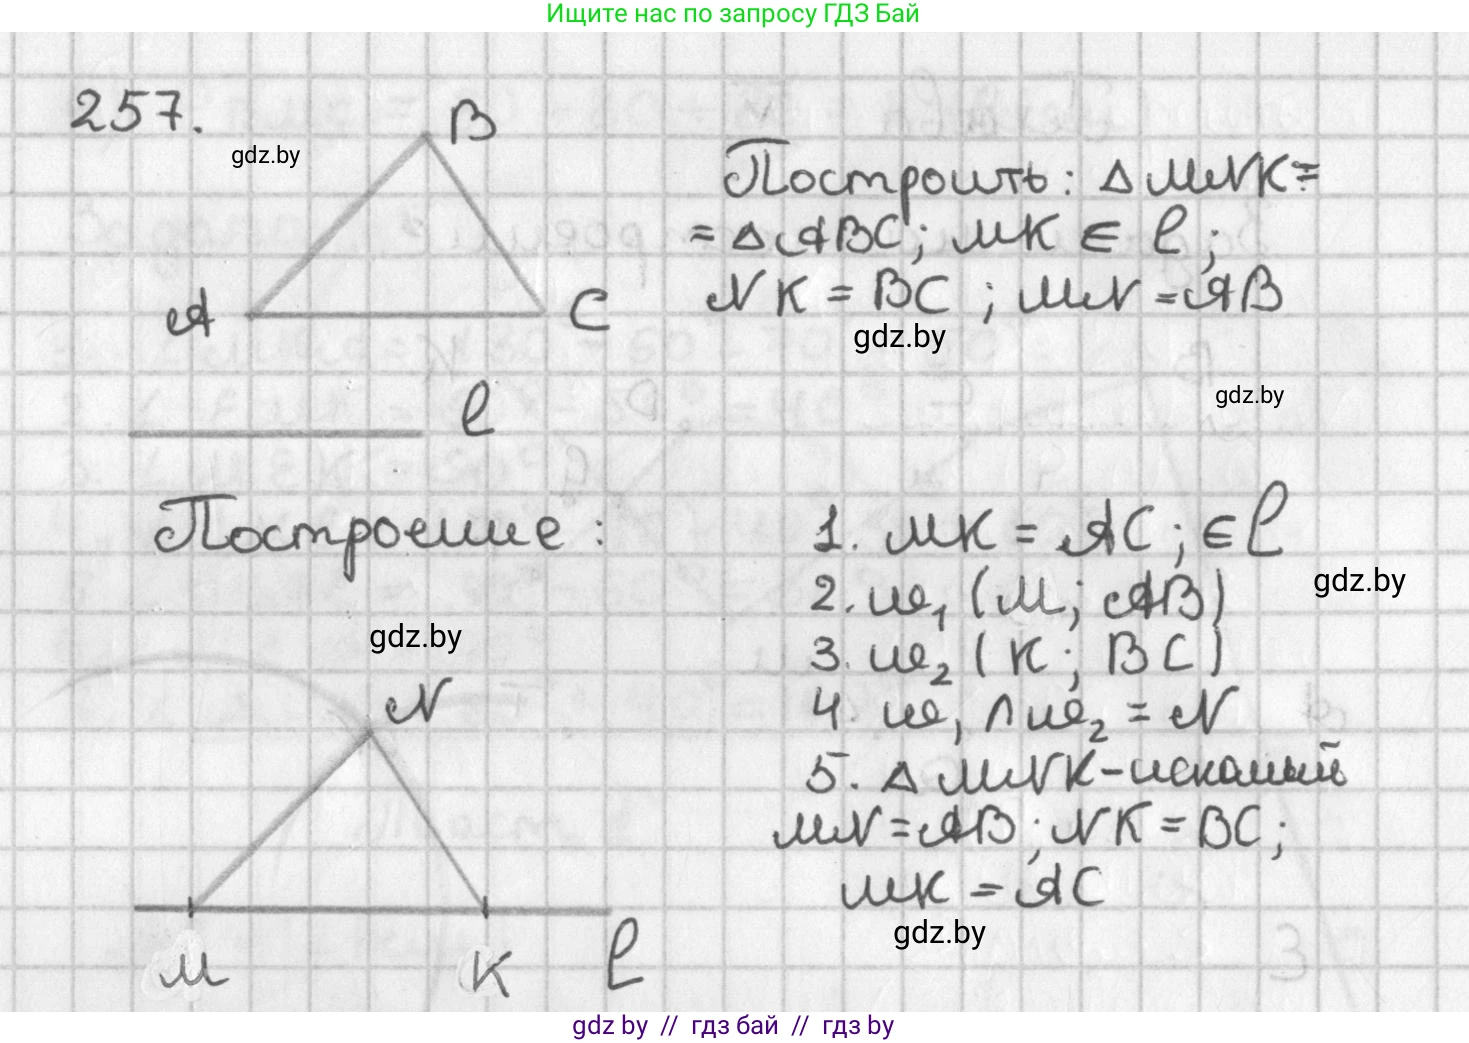 Ищите нас по запросу ГДЗ Бай
257.
B
gdz.by
Построить: △ MNK =
= △ ABC; MK ∈ l;
A
C
NK = BC ; MN = AB
gdz.by
l
gdz.by
Построение :
1. MK = AC; ∈ l
gdz.by
2. ω₁ (M; AB)
gdz.by
3. ω₂ (K; BC)
N
4. ω₁ ∩ ω₂ = N
5. △ MNK - искомый
MN = AB; NK = BC;
MK = AC
gdz.by
M
K
l
gdz by // гдз бай // гдз by